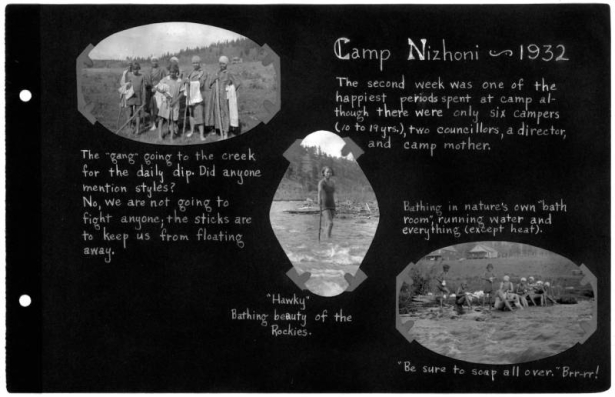 Camp Nizhoni ~ 1932
The second week was one of the
happiest periods spent at camp al-
though there were only six campers
(10 to 19 yrs.), two councillors, a director,
and camp mother.
The "gang" going to the creek
for the daily dip. Did anyone
mention styles?
No, we are not going to
fight anyone; the sticks are
to keep us from floating
away.
"Hawky"
Bathing beauty of the
Rockies.
Bathing in nature's own "bath
room", running water and
everything (except heat).
"Be sure to soap all over." Brr-rr!